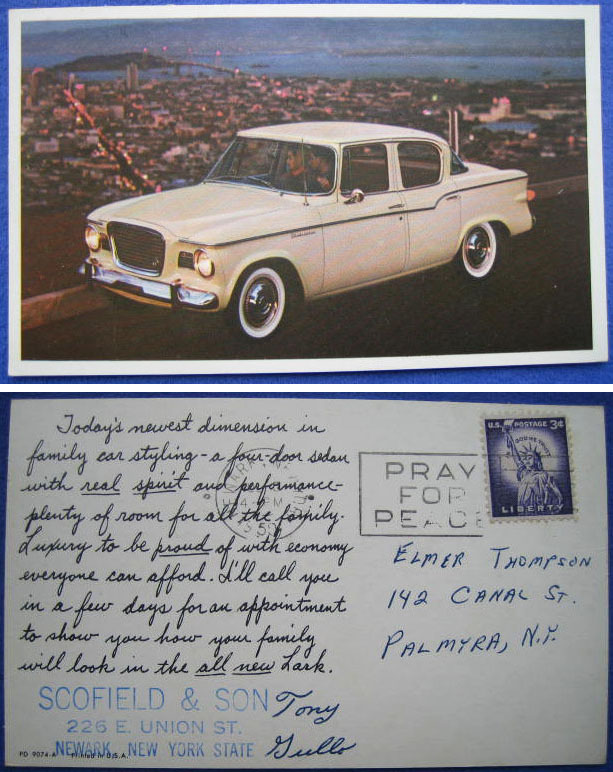 Today's newest dimension in
family car styling - a four-door sedan
with real spirit and performance-
plenty of room for all the family.
Luxury to be proud of with economy
everyone can afford. I'll call you
in a few days for an appointment
to show you how your family
will look in the all new Lark.
Tony
Gullo
SCOFIELD & SON
226 E. UNION ST.
NEWARK, NEW YORK STATE
PD 9074-A Printed in U.S.A.
PRAY
FOR
PEACE
U.S. POSTAGE 3¢
IN GOD WE TRUST
LIBERTY
ELMER THOMPSON
142 CANAL ST.
PALMYRA, N.Y.